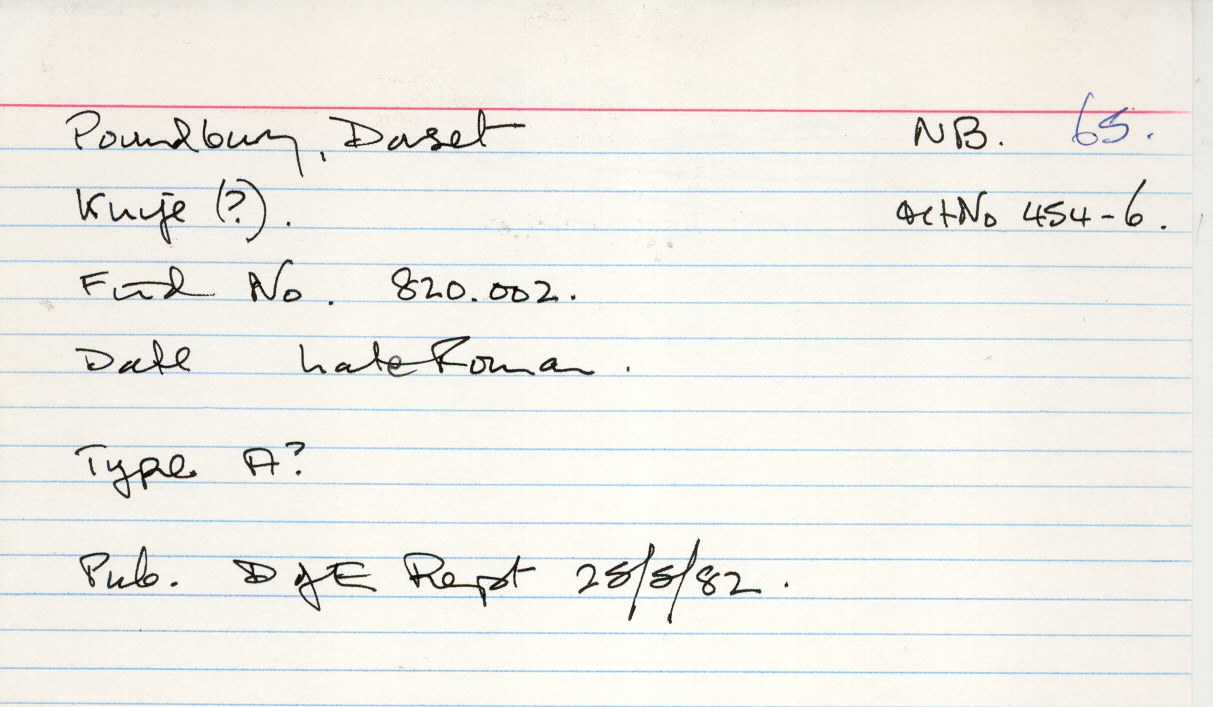 Poundbury, Dorset NB. 65.
Knife (?). Act No 454-6.
Find No. 820.002.
Date Late Roman.
Type A?
Pub. DofE Rept 28/5/82.